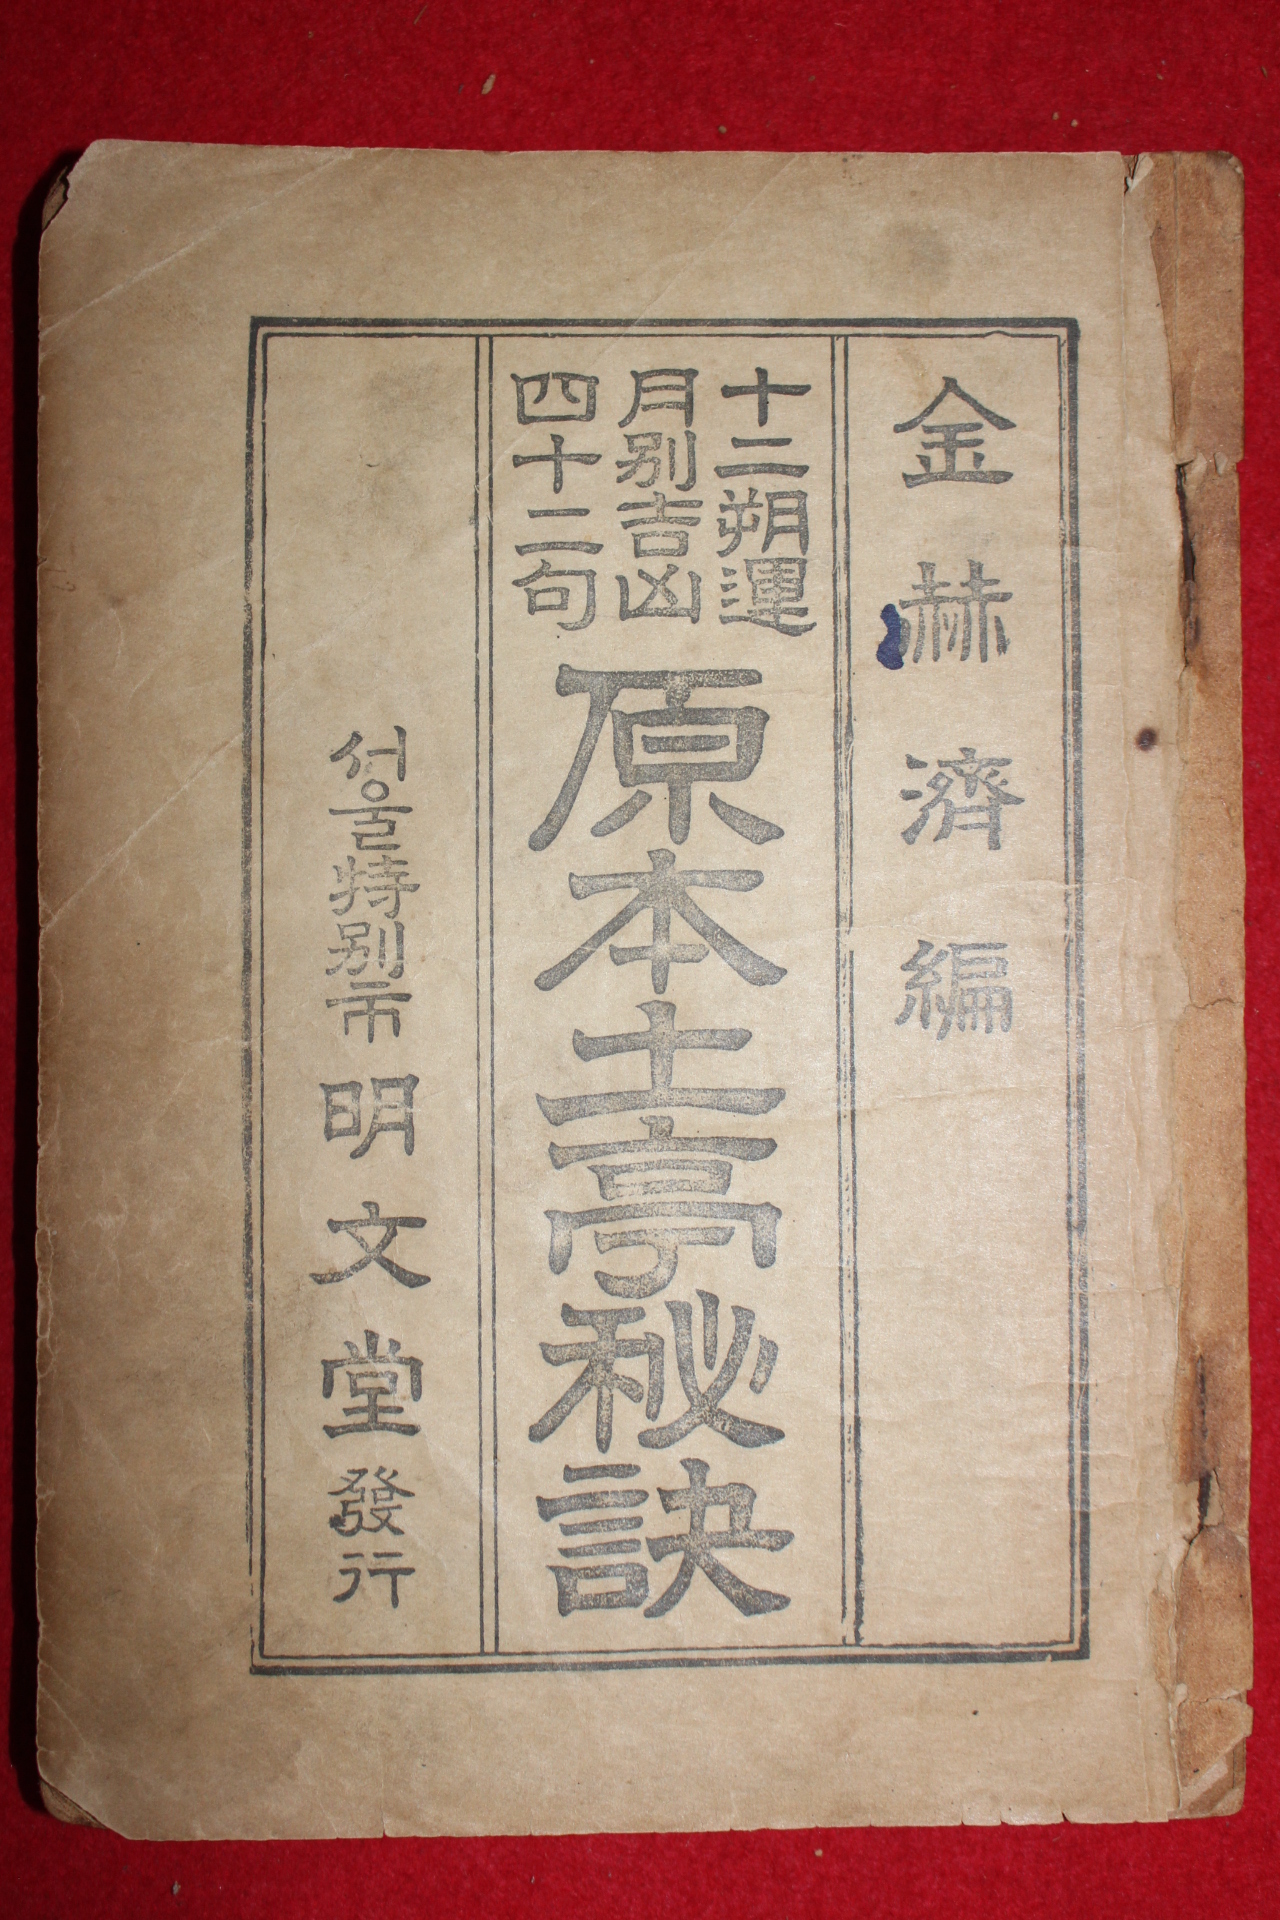 金赫濟編
十二朔運
月別吉凶
四十二句
原本土亭秘訣
서울特別市 明文堂 發行